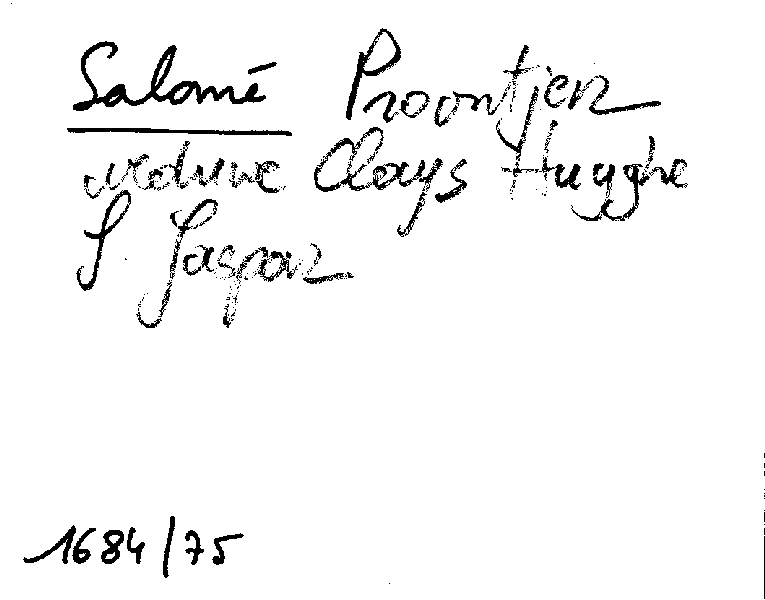 Salomé Proontjer
weduwe Clays Huyghe
S. Jaspar
1684/75